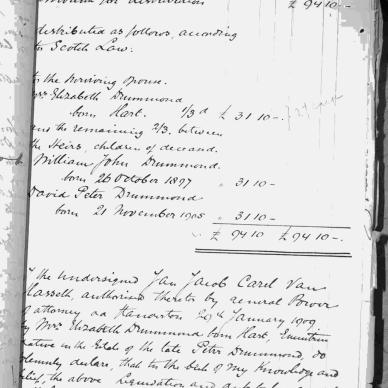 amount for distribution £ 94 10 -.
distributed as follows, according
to Scotch Law:
to the Surviving Spouse.
Mrs Elizabeth Drummond
born Hart. 1/3d £ 31 10 -.
and the remaining 2/3. between
the Heirs, children of deceasd.
William John Drummond.
born 26 October 1897 " 31 10 -
David Peter Drummond
born 21 November 1905 " 31 10 -
£ 94 10 £ 94 10 -.
I the undersigned Jan Jacob Carel Van
Hasselt, authorised thereto by general Power
of attorney dd Hamorton 20th January 1909
by Mrs. Elizabeth Drummond born Hart, Executrix
dative in the Estate of the late Peter Drummond, do
solemnly declare, that to the best of my knowledge and
belief, the above liquidation and